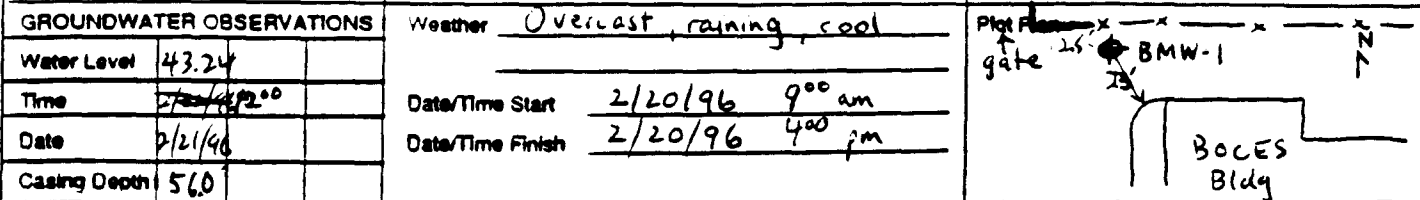 GROUNDWATER OBSERVATIONS
Water Level 43.24
Time 12⁰⁰
Date 2/21/96
Casing Depth 56.0'
Weather Overcast, raining, cool
Date/Time Start 2/20/96 9⁰⁰ am
Date/Time Finish 2/20/96 4⁰⁰ pm
Plot Plan
gate
25'
BMW-1
25'
N
BOCES
Bldg